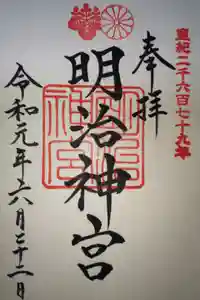 皇紀二千六百七十九年
奉拝
明治神宮
令和元年六月二十二日